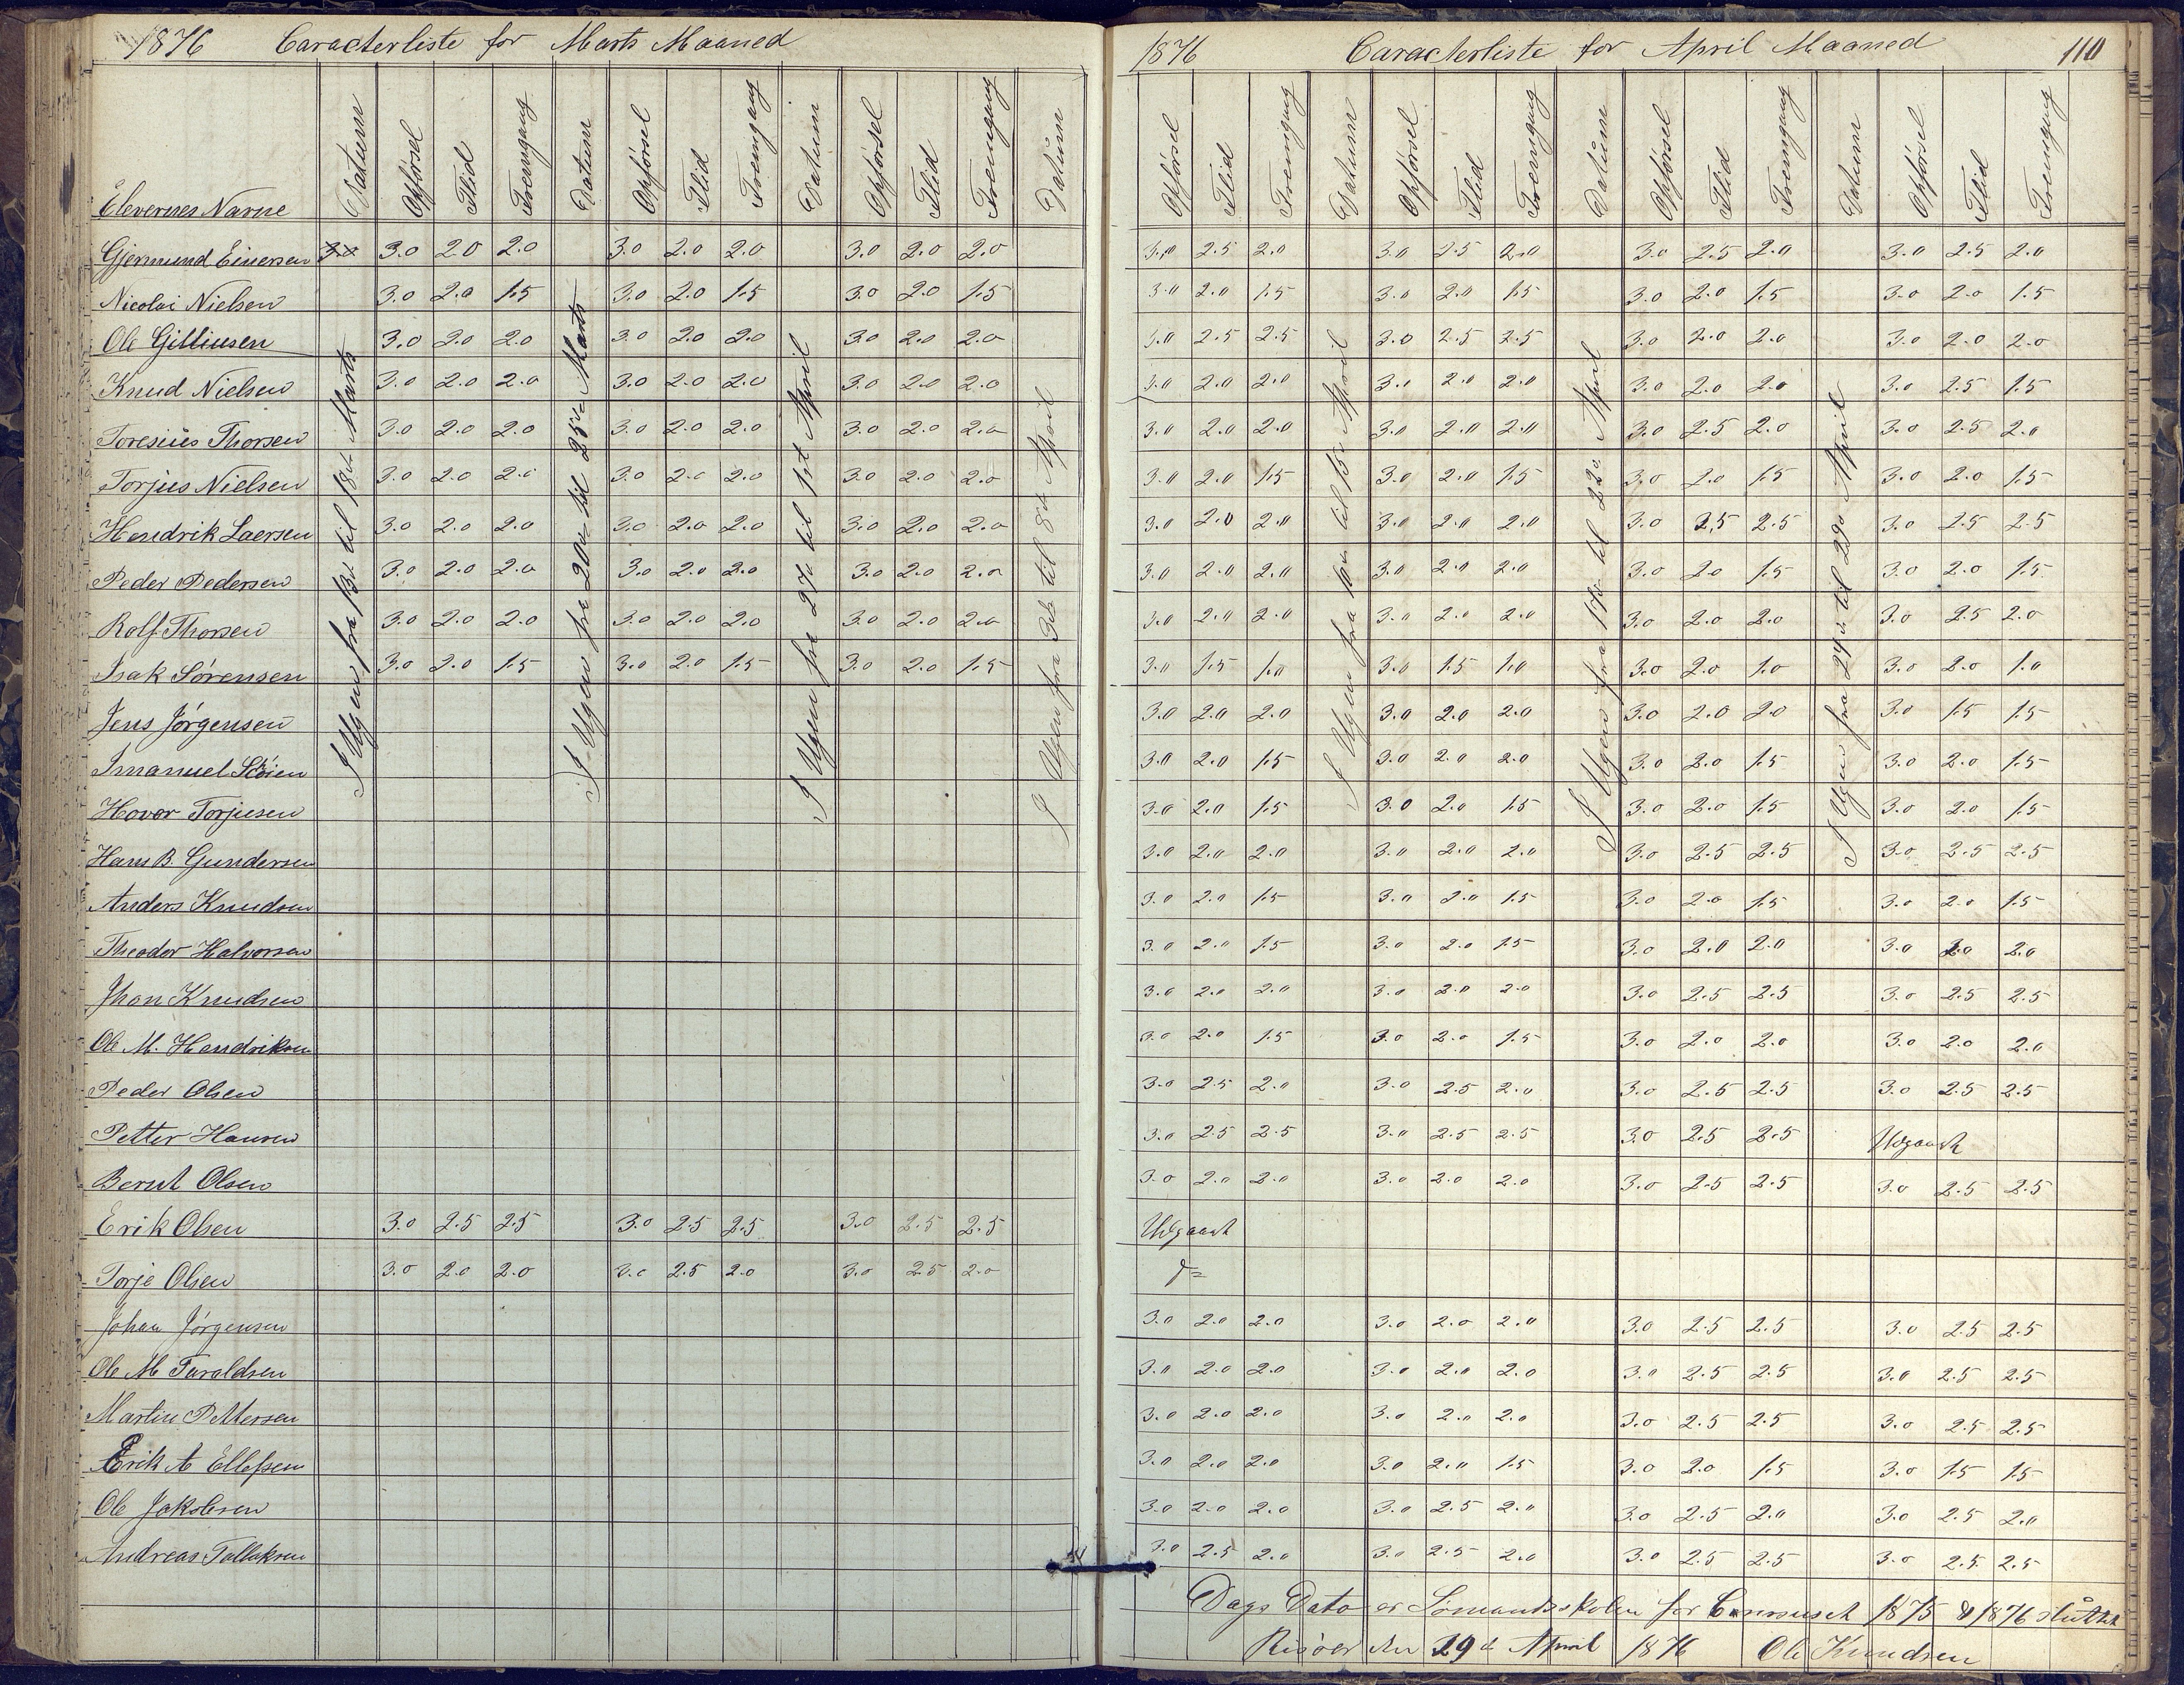 1876 Caracterliste for Marts Maaned
Elevernes Navne Datum Opførsel Flid Fremgang Datum Opførsel Flid Fremgang Datum Opførsel Flid Fremgang Datum
I Ugen fra 13de til 18de Marts
I Ugen fra 20de til 25de Marts
I Ugen fra 27de til 1st April
I Ugen fra 3de til 8de April
Gjermund Einersen 3.0 2.0 2.0 3.0 2.0 2.0 3.0 2.0 2.0
Nicolai Nielsen 3.0 2.0 1.5 3.0 2.0 1.5 3.0 2.0 1.5
Ole Gilliusen 3.0 2.0 2.0 3.0 2.0 2.0 3.0 2.0 2.0
Knud Nielsen 3.0 2.0 2.0 3.0 2.0 2.0 3.0 2.0 2.0
Toresius Thorsen 3.0 2.0 2.0 3.0 2.0 2.0 3.0 2.0 2.0
Torjus Nielsen 3.0 2.0 2.0 3.0 2.0 2.0 3.0 2.0 2.0
Hendrik Laersen 3.0 2.0 2.0 3.0 2.0 2.0 3.0 2.0 2.0
Peder Pedersen 3.0 2.0 2.0 3.0 2.0 2.0 3.0 2.0 2.0
Rolf Thorsen 3.0 2.0 2.0 3.0 2.0 2.0 3.0 2.0 2.0
Isak Sørensen 3.0 2.0 1.5 3.0 2.0 1.5 3.0 2.0 1.5
Jens Jørgensen
Imanuel
Hovor Torjusen
Hans B. Gundersen
Anders Knudsen
Theodor Halvorsen
Jhon Knudsen
Ole M. Hendriksen
Peder Olsen
Petter Hansen
Bernt Olsen
Erik Olsen 3.0 2.5 2.5 3.0 2.5 2.5 3.0 2.5 2.5
Torje Olsen 3.0 2.0 2.0 3.0 2.5 2.0 3.0 2.5 2.0
Johan Jørgensen
Ole M Taraldsen
Martin Pettersen
Erik A Ellefsen
Ole Jakobsen
Andreas Tallaksen
1876 Caracterliste for April Maaned 110
Opførsel Flid Fremgang Datum Opførsel Flid Fremgang Datum Opførsel Flid Fremgang Datum Opførsel Flid Fremgang
I Ugen fra 10de til 15de April
I Ugen fra 17de til 22de April
I Ugen fra 24de til 29de April
3.0 2.5 2.0 3.0 2.5 2.0 3.0 2.5 2.0 3.0 2.5 2.0
3.0 2.0 1.5 3.0 2.0 1.5 3.0 2.0 1.5 3.0 2.0 1.5
3.0 2.5 2.5 3.0 2.5 2.5 3.0 2.0 2.0 3.0 2.0 2.0
3.0 2.0 2.0 3.0 2.0 2.0 3.0 2.0 2.0 3.0 2.5 1.5
3.0 2.0 2.0 3.0 2.0 2.0 3.0 2.5 2.0 3.0 2.5 2.0
3.0 2.0 1.5 3.0 2.0 1.5 3.0 2.0 1.5 3.0 2.0 1.5
3.0 2.0 2.0 3.0 2.0 2.0 3.0 2.5 2.5 3.0 2.5 2.5
3.0 2.0 2.0 3.0 2.0 2.0 3.0 2.0 1.5 3.0 2.0 1.5
3.0 2.0 2.0 3.0 2.0 2.0 3.0 2.0 2.0 3.0 2.5 2.0
3.0 1.5 1.0 3.0 1.5 1.0 3.0 2.0 1.0 3.0 2.0 1.0
3.0 2.0 2.0 3.0 2.0 2.0 3.0 2.0 2.0 3.0 1.5 1.5
3.0 2.0 1.5 3.0 2.0 2.0 3.0 2.0 1.5 3.0 2.0 1.5
3.0 2.0 1.5 3.0 2.0 1.5 3.0 2.0 1.5 3.0 2.0 1.5
3.0 2.0 2.0 3.0 2.0 2.0 3.0 2.5 2.5 3.0 2.5 2.5
3.0 2.0 1.5 3.0 2.0 1.5 3.0 2.0 1.5 3.0 2.0 1.5
3.0 2.0 1.5 3.0 2.0 1.5 3.0 2.0 2.0 3.0 2.0 2.0
3.0 2.0 2.0 3.0 2.0 2.0 3.0 2.5 2.5 3.0 2.5 2.5
3.0 2.0 1.5 3.0 2.0 1.5 3.0 2.0 2.0 3.0 2.0 2.0
3.0 2.5 2.0 3.0 2.5 2.0 3.0 2.5 2.5 3.0 2.5 2.5
3.0 2.5 2.5 3.0 2.5 2.5 3.0 2.5 2.5 Udgaaet
3.0 2.0 2.0 3.0 2.0 2.0 3.0 2.5 2.5 3.0 2.5 2.5
Udgaaet
do
3.0 2.0 2.0 3.0 2.0 2.0 3.0 2.5 2.5 3.0 2.5 2.5
3.0 2.0 2.0 3.0 2.0 2.0 3.0 2.5 2.5 3.0 2.5 2.5
3.0 2.0 2.0 3.0 2.0 2.0 3.0 2.5 2.5 3.0 2.5 2.5
3.0 2.0 2.0 3.0 2.0 1.5 3.0 2.0 1.5 3.0 1.5 1.5
3.0 2.0 2.0 3.0 2.5 2.0 3.0 2.5 2.0 3.0 2.5 2.0
3.0 2.5 2.0 3.0 2.5 2.0 3.0 2.5 2.5 3.0 2.5 2.5
Dags Dato er Sømandsskolen for Coursuset 1875 & 1876 sluttet
Risøer den 29de April 1876 Ole Knudsen